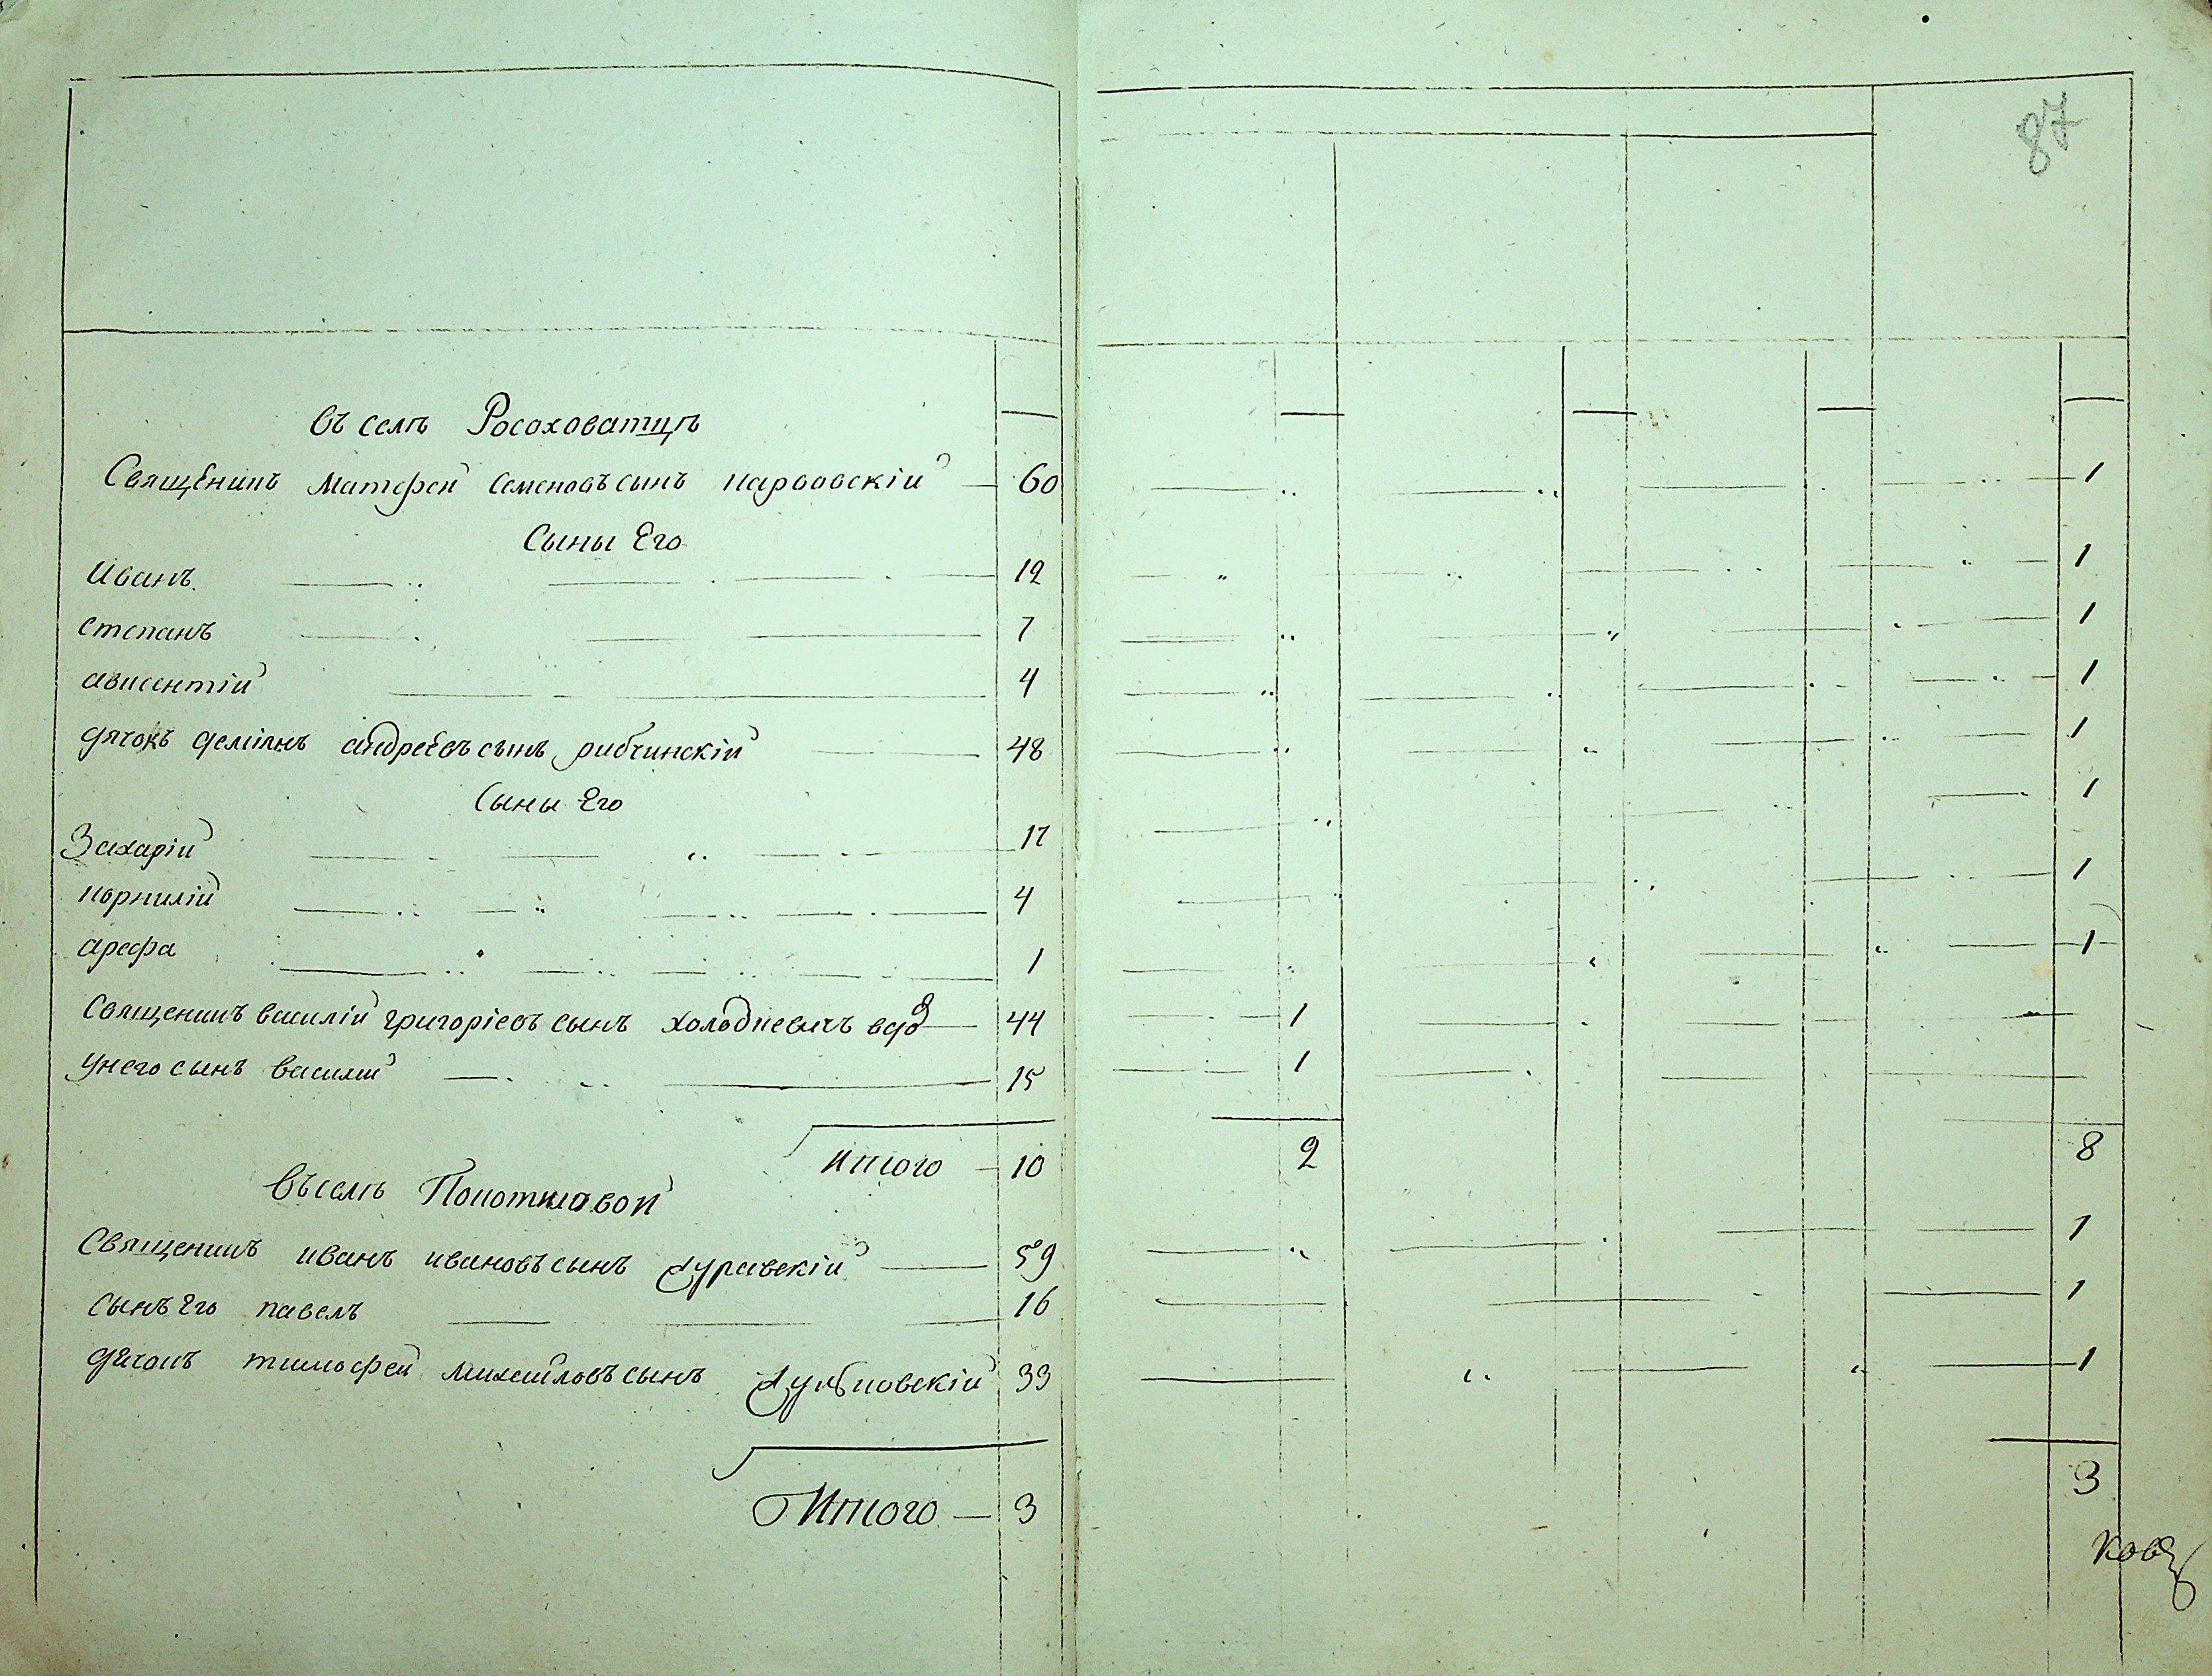 87
въ селѣ Росоховатцѣ
Священикъ матфей семеновъ сынъ карвовскій — 60 1
Сыны Его
Иванъ 12 1
степанъ 7 1
авксентій 4 1
дячокъ деміянъ андреевъ сынъ рибчинскій 48 1
Сыны Его 1
Захарій 17
корнилій 4 1
арефа 1 1
священикъ василій григоріевъ сынъ холодкевичъ 44 1
у него сынъ василій 15 1
Итого — 10 2 8
въ селѣ
Священикъ иванъ ивановъ сынъ журавскій 59 1
сынъ Его павелъ 16 1
дячокъ тимофей михайловъ сынъ 33 1
Итого — 3 3